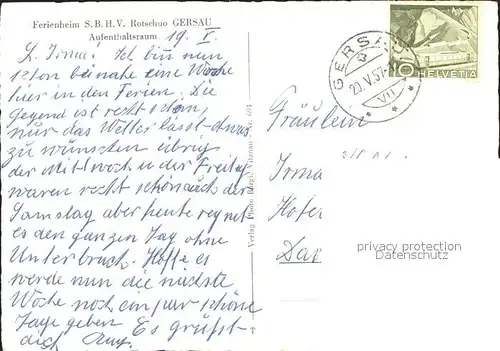 Ferienheim S.B.H.V. Rotschuo GERSAU
Aufenthaltsraum
19. V.
L. Irma! Ich bin nun
schon beinahe eine Woche
hier in den Ferien. Die
Gegend ist recht schön,
nur das Wetter lässt etwas
zu wünschen übrig
der Mittwoch u der Freitag
waren recht schön auch der
Samstag aber heute regnet
es den ganzen Tag ohne
Unterbruch. Hoffe es
werde nun die nächste
Woche noch ein paar schöne
Tage geben. Es grüsst
dich
Verlag Photo
GERSAU
20.V.57
VII
10
HELVETIA
Fräulein
Irma
Hofer
privacy protection
Datenschutz